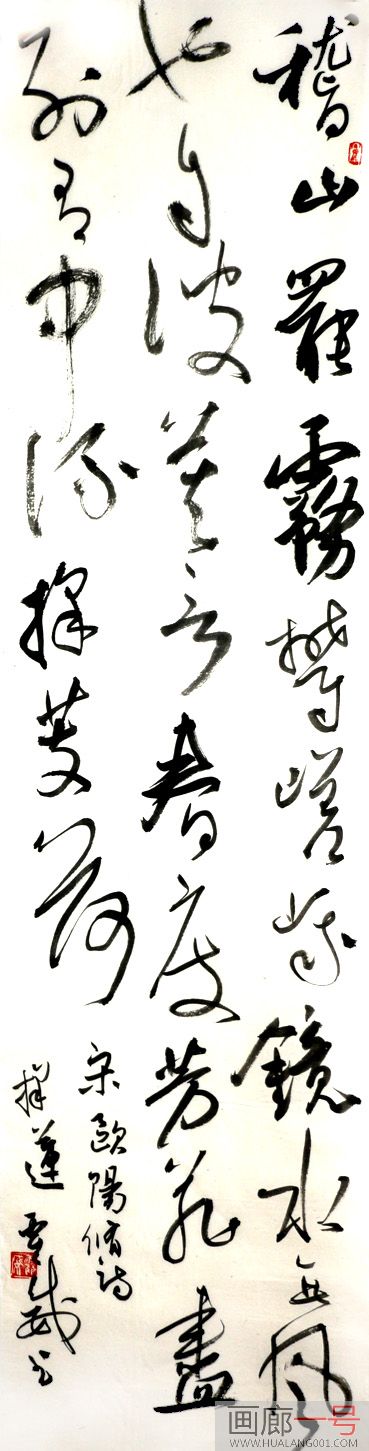 稽山罷霧鬱嵯峨鏡水無風
也自波莫言春度芳菲盡
別有中流採芰荷
宋歐陽脩詩
採蓮
画廊一号
WWW.HUALANG001.COM